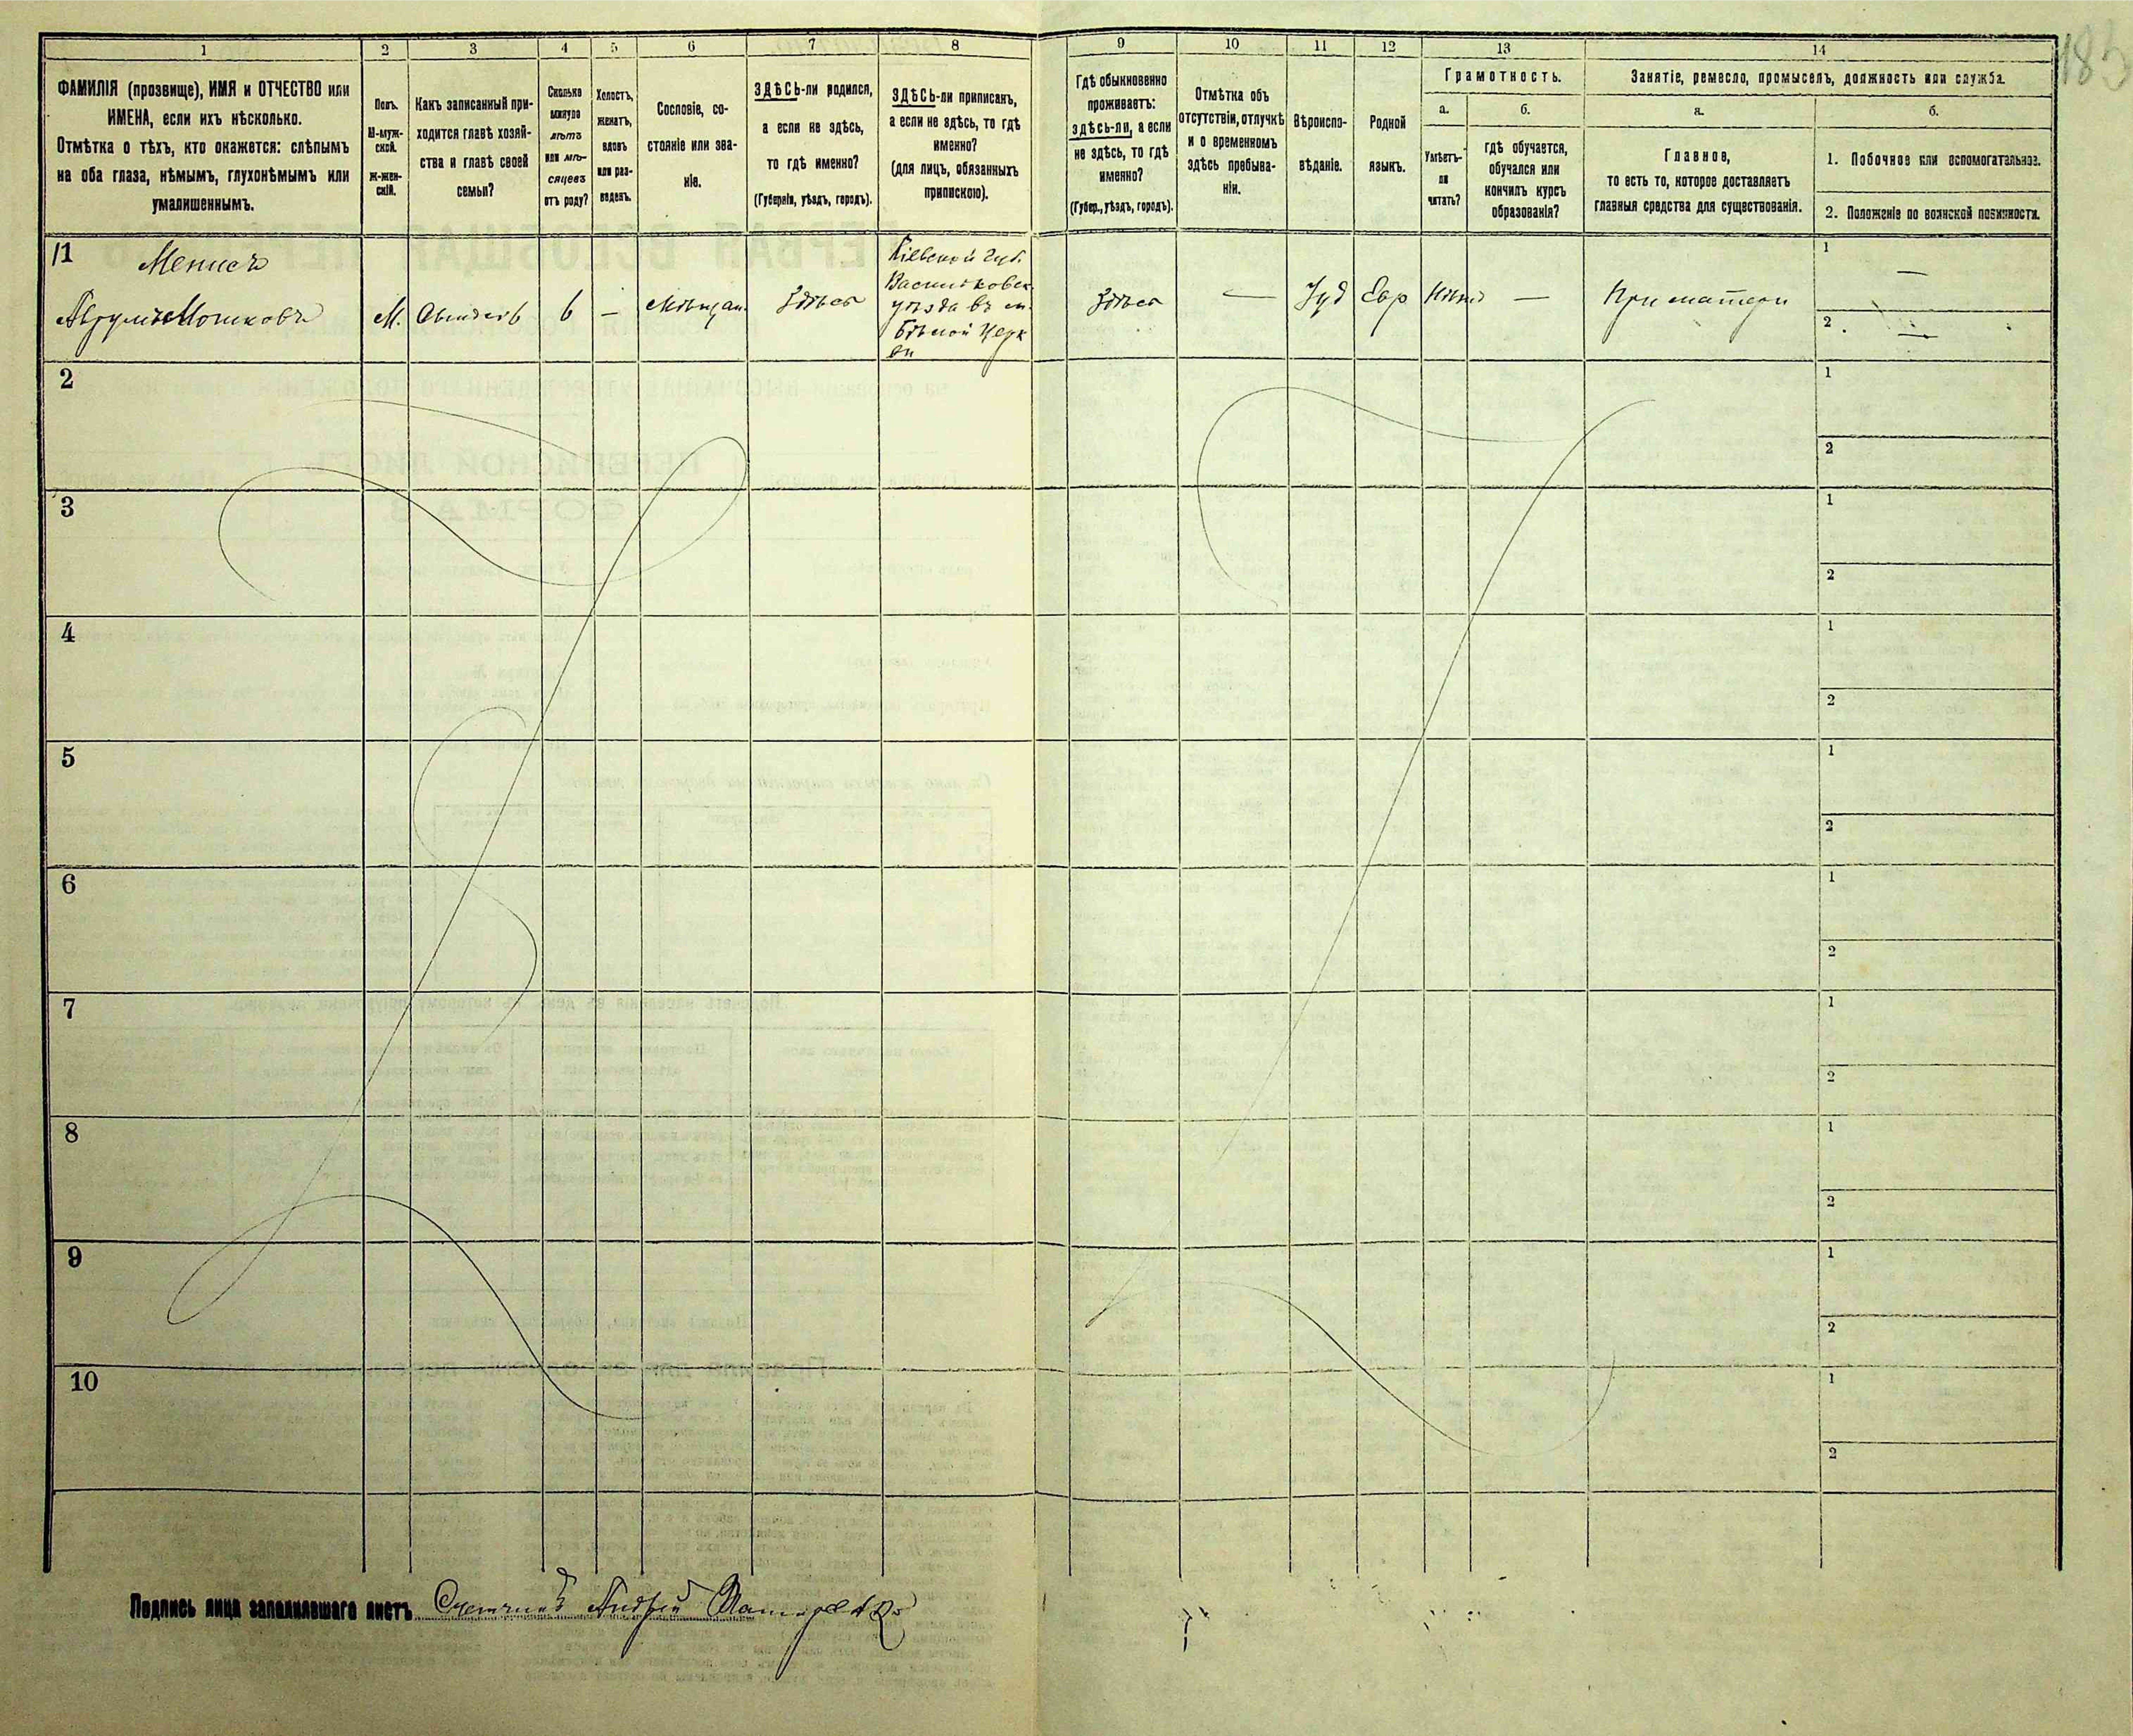 183
1
2
3
4
5
6
7
8
9
10
11
12
13
14
ФАМИЛІЯ (прозвище), ИМЯ и ОТЧЕСТВО или
ИМЕНА, если ихъ нѣсколько.
Отмѣтка о тѣхъ, кто окажется: слѣпымъ
на оба глаза, нѣмымъ, глухонѣмымъ или
умалишеннымъ.
Полъ.
М-муж-
ской.
Ж-жен-
скій.
Какъ записанный при-
ходится главѣ хозяй-
ства и главѣ своей
семьи?
Сколько
минуло
лѣтъ
или мѣ-
сяцевъ
отъ роду?
Холостъ,
женатъ,
вдовъ
или раз-
веденъ.
Сословіе, со-
стояніе или зва-
ніе.
ЗДѢСЬ-ли родился,
а если не здѣсь,
то гдѣ именно?
(Губернія, уѣздъ, городъ).
ЗДѢСЬ-ли приписанъ,
а если не здѣсь, то гдѣ
именно?
(для лицъ, обязанныхъ
припискою).
Гдѣ обыкновенно
проживаетъ:
здѣсь-ли, а если
не здѣсь, то гдѣ
именно?
(Губер., уѣздъ, городъ).
Отмѣтка объ
отсутствіи, отлучкѣ
и о временномъ
здѣсь пребыва-
ніи.
Вѣроиспо-
вѣданіе.
Родной
языкъ.
Грамотность.
а.
Умѣетъ-
ли
читать?
б.
гдѣ обучается,
обучался или
кончилъ курсъ
образованія?
Занятіе, ремесло, промыселъ, должность или служба.
а.
Главное,
то есть то, которое доставляетъ
главныя средства для существованія.
б.
1. Побочное или вспомогательное.
2. Положеніе по воинской повинности.
11
Аврумъ Мошковъ
М.
6
—
Мѣщан.
Здѣсь
Кіевской губ.
Васильковск.
уѣзда въ м.
Бѣлой Церк
ви
Здѣсь
—
Іуд
Евр
Нѣтъ
—
При матери
1 —
2 —
2
1
2
3
1
2
4
1
2
5
1
2
6
1
2
7
1
2
8
1
2
9
1
2
10
1
2
Подпись лица заполнявшаго листъ Счетчикъ Андрей